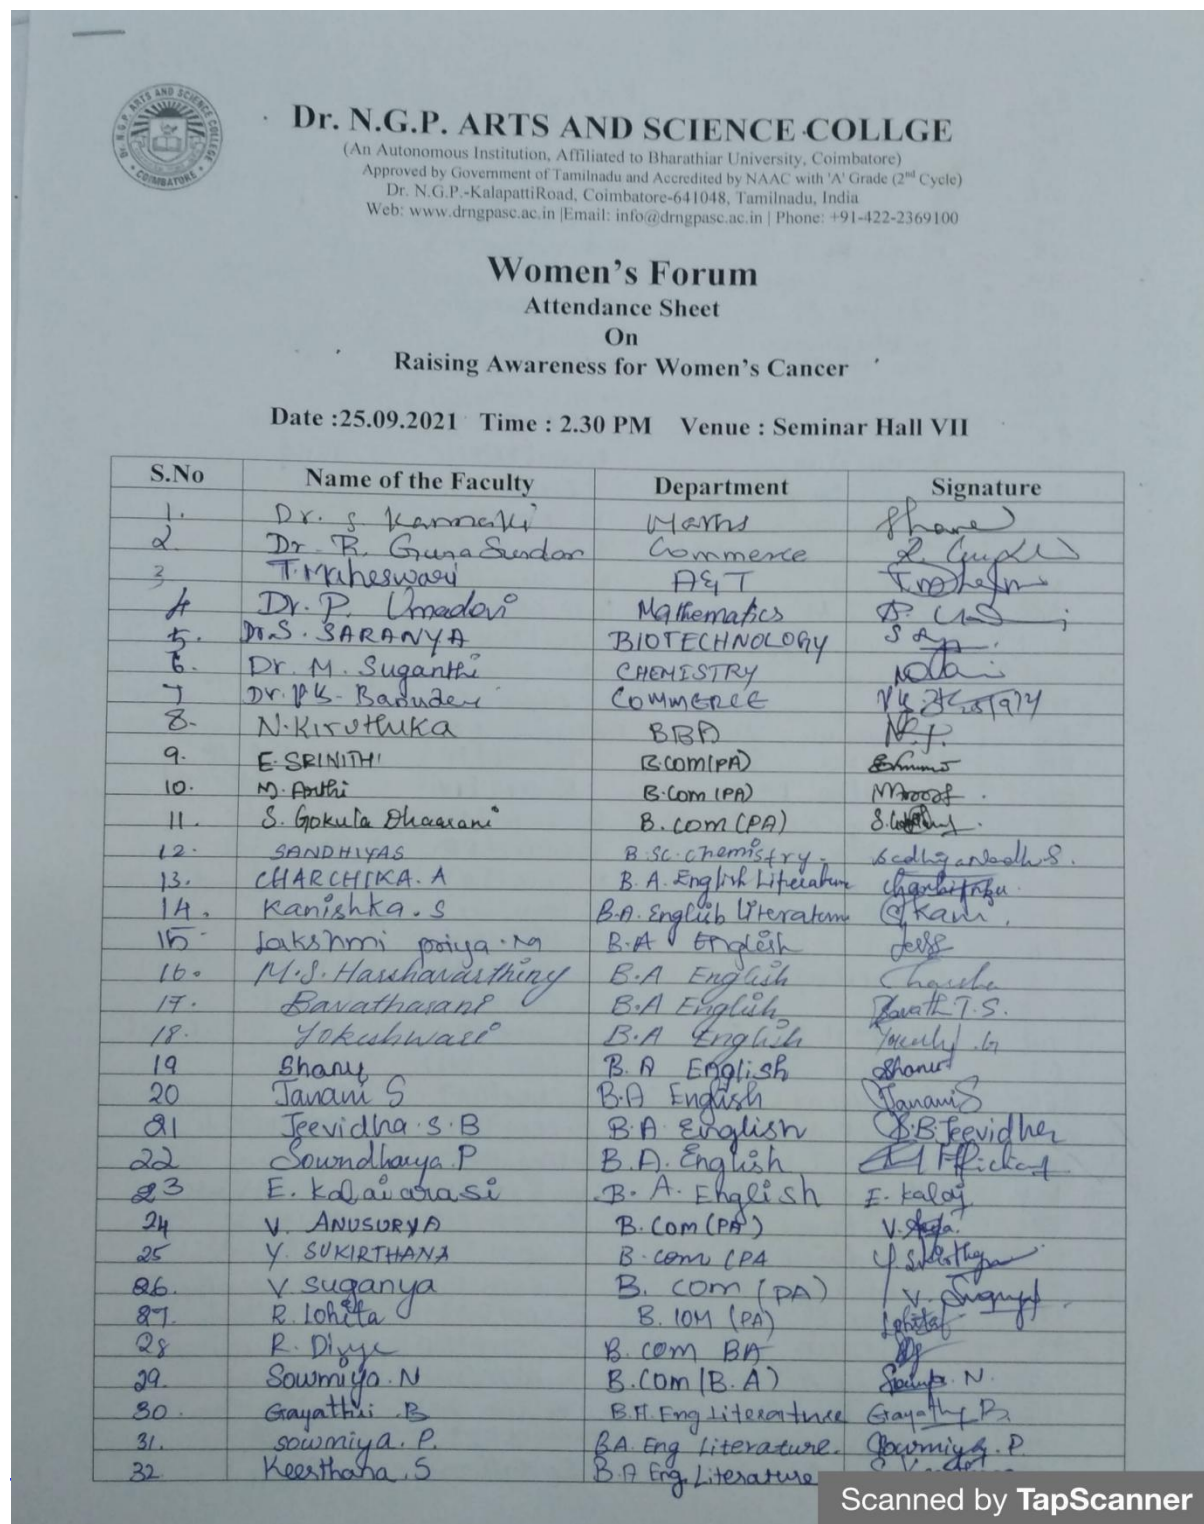 Dr. N.G.P. ARTS AND SCIENCE COLLEGE COIMBATORE
Dr. N.G.P. ARTS AND SCIENCE COLLGE
(An Autonomous Institution, Affiliated to Bharathiar University, Coimbatore)
Approved by Government of Tamilnadu and Accredited by NAAC with 'A' Grade (2nd Cycle)
Dr. N.G.P.-KalapattiRoad, Coimbatore-641048, Tamilnadu, India
Web: www.drngpasc.ac.in |Email: info@drngpasc.ac.in | Phone: +91-422-2369100
Women's Forum
Attendance Sheet
On
Raising Awareness for Women's Cancer
Date :25.09.2021 Time : 2.30 PM Venue : Seminar Hall VII
S.No Name of the Faculty Department Signature
1. Dr. S Kannaki Maths
2 Dr. R. Guna Sundar Commerce
3 T. Maheswari A&T
4 Dr. P. Umadevi Mathematics
5. Dr.S. SARANYA BIOTECHNOLOGY
6. Dr. M. Suganthi CHEMISTRY
7 Dr. COMMERCE
8. N. Kiruthika BBA
9. E. SRINITHI B.COM(PA)
10. M. Arthi B.Com (PA)
11. S. Gokula Dhaarani B.com (PA)
12. SANDHIYAS B.SC. Chemistry.
13. CHARCHIKA. A B. A. English Literature
14. Kanishka. S B.A. English Literature Kani
15 Lakshmi priya. M B.A English
16. M.S. Harshavarthiny B.A English
17. Bavatharani B.A English T.S.
18. Yokeshwari B.A English
19 Shany B. A English
20 Janani S B.A English Janani S
21 Jeevidha. S. B B.A. English S.B. Jeevidha
22 Soundharya. P B.A. English
23 E. Kalaiarasi B. A. English E. Kalai
24 V. ANUSURYA B. Com (PA) V.
25 Y. SUKIRTHANA B. com (PA
26. V. Suganya B. com (PA) V.
27. R. Lohita B. COM (PA)
28 R. Divya B. com BA
29. Sowmiya. N B.Com (B.A) N.
30. Gayathri. B B.A. Eng Literature Gayathri B
31. Sowmiya. P. BA. Eng Literature. Sowmiya. P
32. Keerthana. S B.A Eng. Literature
Scanned by TapScanner